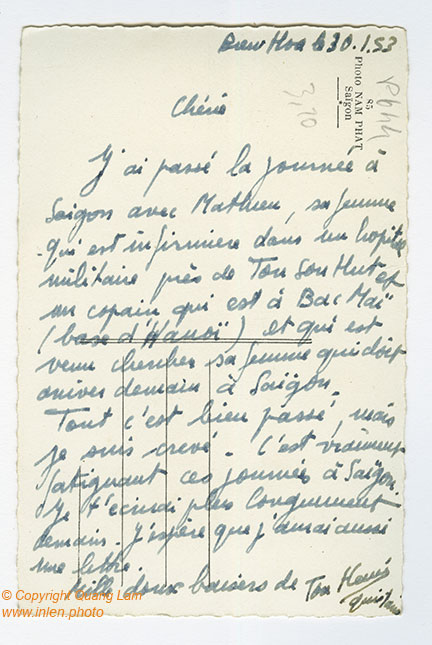 Bien Hoa le 30.1.53
85
Photo NAM PHAT
Saigon
3,20
Chérie
J'ai passé la journée à
Saigon avec Mathieu, sa femme
qui est infirmière dans un hopital
militaire près de Ton Son Hut et
un copain qui est à Bac Maï
(base d'Hanoï) et qui est
venu chercher sa femme qui doit
arriver demain à Saïgon.
Tout c'est bien passé, mais
je suis crevé. C'est vraiment
fatiguant ces journées à Saïgon.
Je t'écrirai plus longuement
demain. J'espère que j'aurai aussi
une lettre.
Mille doux baisers de Ton
© Copyright Quang Lam
www.inlen.photo